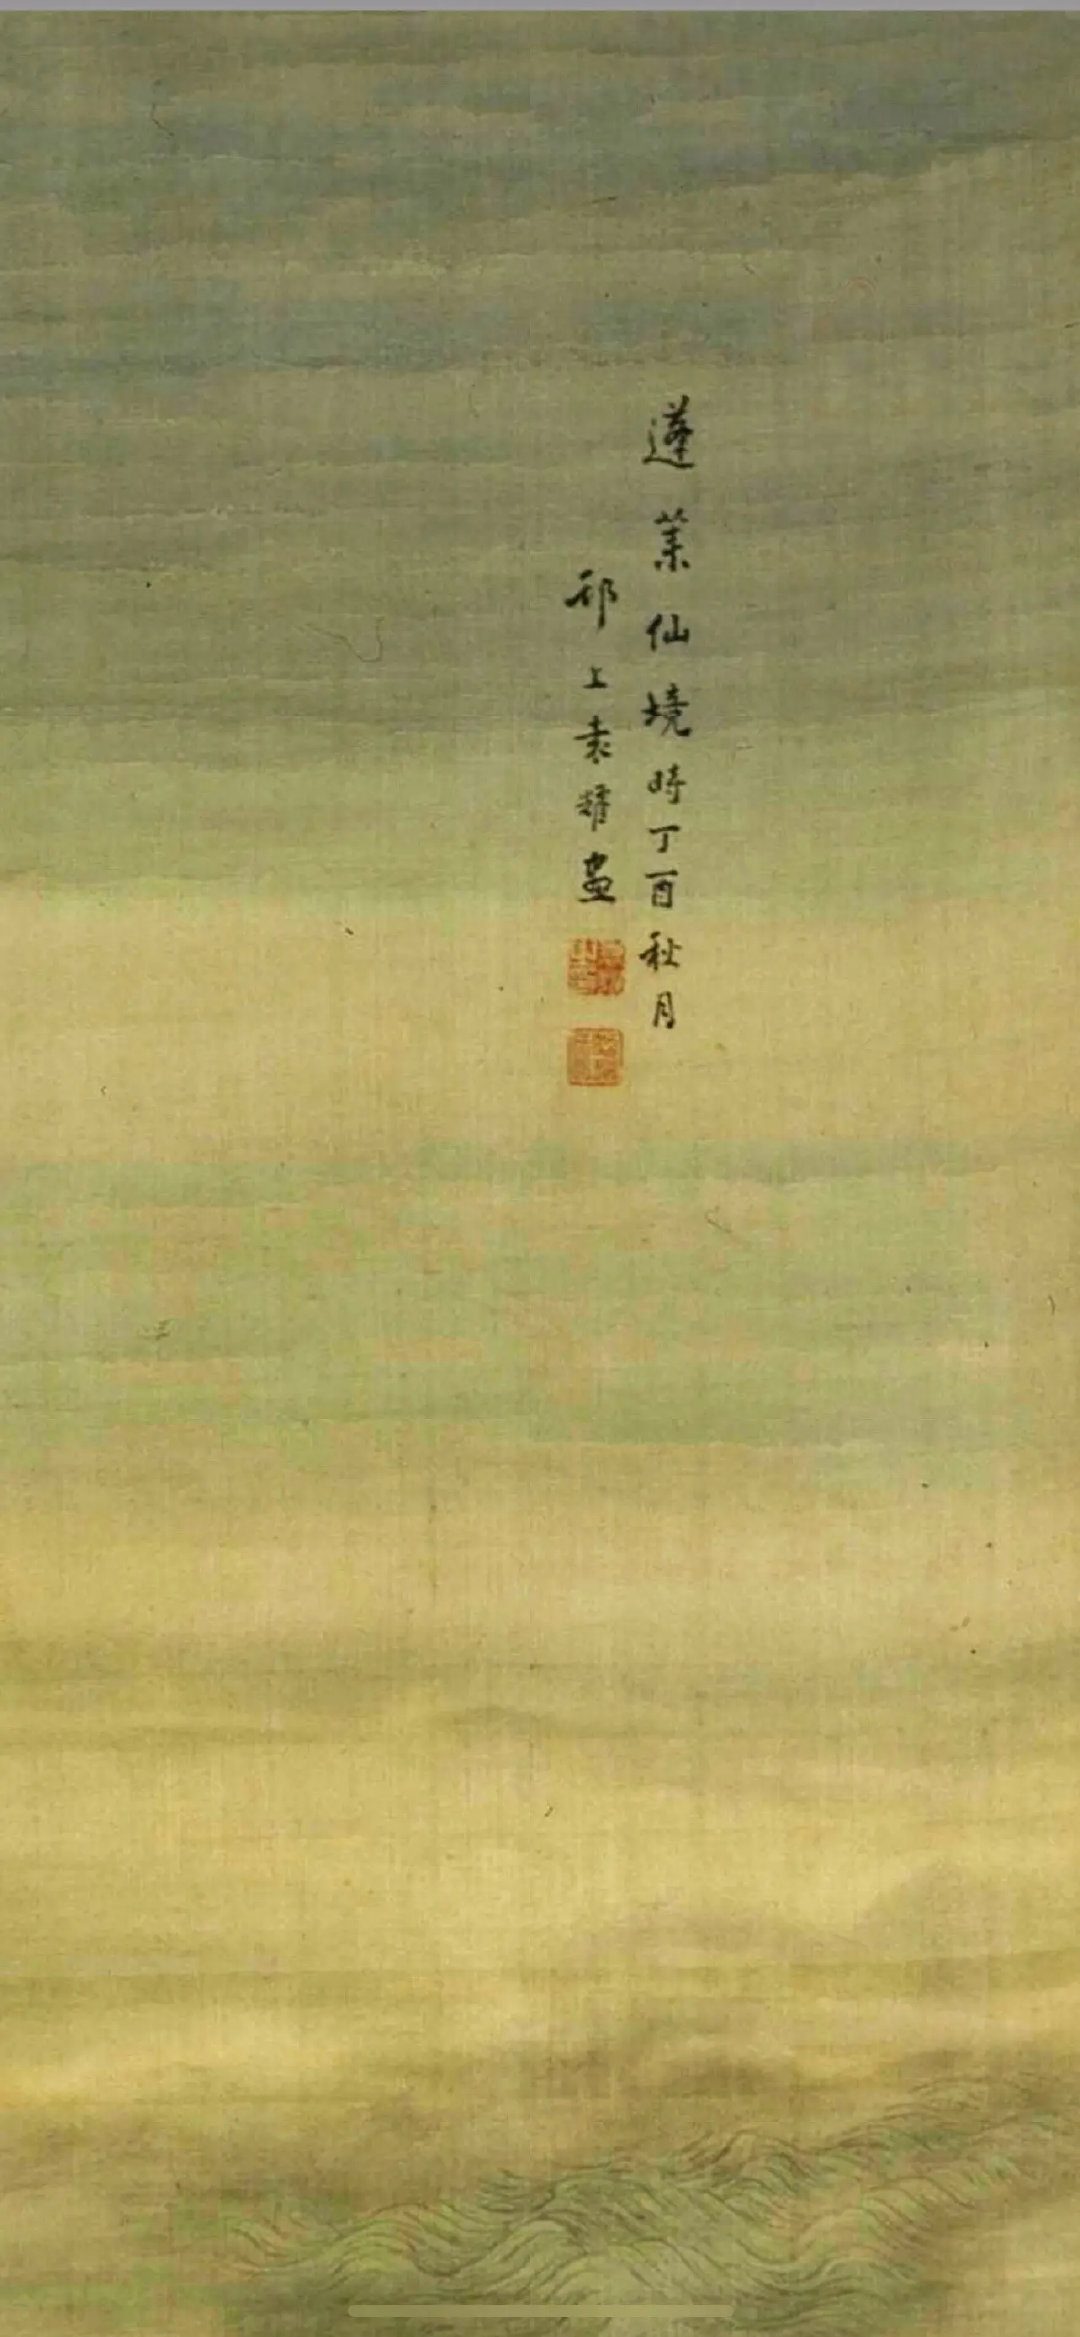 蓬莱仙境時丁酉秋月
邗上袁耀畫